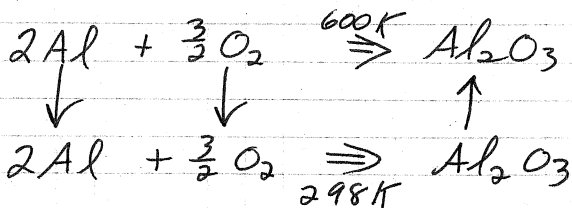 2Al + 3/2 O₂ ⇒ 600K Al₂O₃
↓ ↓ ↑
2Al + 3/2 O₂ ⇒ 298K Al₂O₃